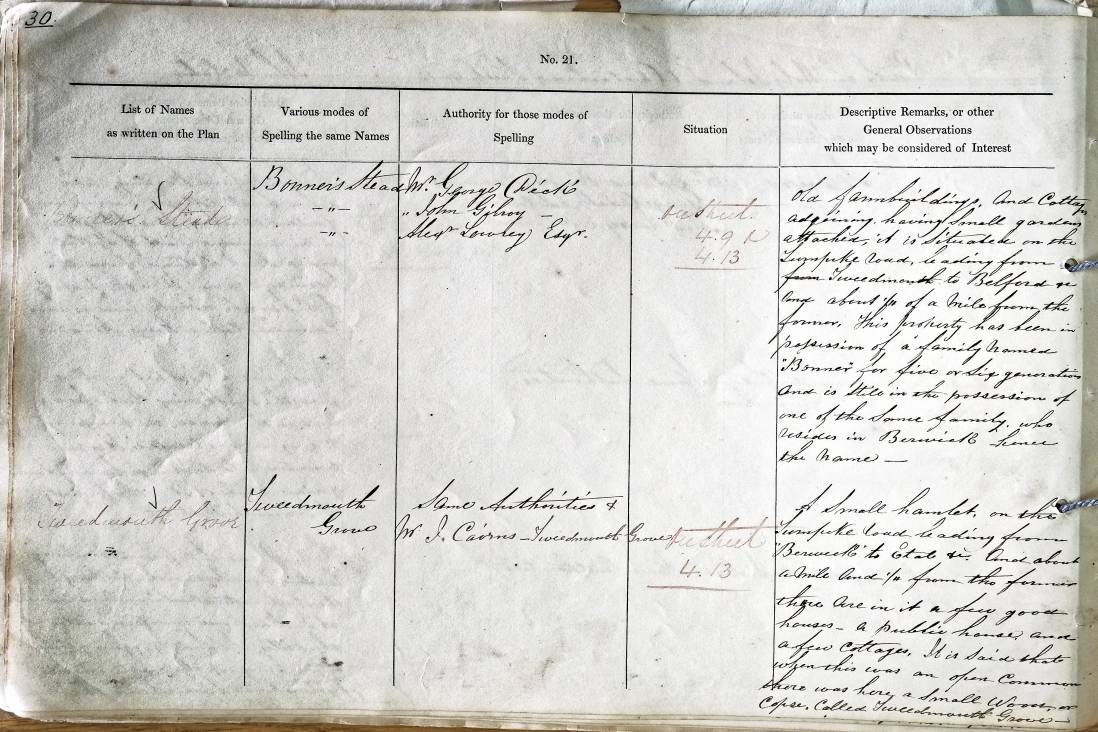 30.
No. 21.
List of Names
as written on the Plan
Various modes of
Spelling the same Names
Authority for those modes of
Spelling
Situation
Descriptive Remarks, or other
General Observations
which may be considered of Interest
Stead
Bonner's Stead
— " —
— " —
Mr. George Dick
" John Gilroy —
Alexr Lowrey Esqr.
Sheet
4. 9
4. 13
Old farmbuildings, And Cottage
adjoining, having Small gardens
attached, it is Situated on the
Turnpike road, leading from
from Tweedmouth to Belford &c
And about of a Mile from the
former. This property has been in
possession of a family Named
"Bonner" for five or Six generations
And is Still in the possession of
one of the Same family, who
resides in Berwick hence
the Name —
Tweedmouth Grove
Tweedmouth
Grove
Same Authorities &
Mr J. Cairns — Tweedmouth Grove
Sheet
4. 13
A Small hamlet, on the
Turnpike road leading from
"Berwick" to Etal &c. And about
a Mile And from the former
there Are in it a few good
houses — a public house, and
a few Cottages. It is Said that
when this was an open Common
there was here, a Small Wood, or
Copse, Called Tweedmouth Grove —